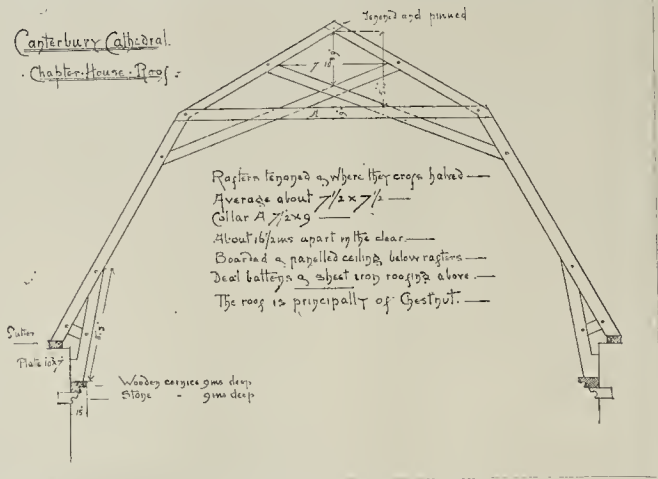 Canterbury Cathedral.
Chapter-House-Roof:
Tenoned and pinned
7' 10"
A
Rafters tenoned & where they cross halved —
Average about 7 1/2 x 7 1/2 —
Collar A 7 1/2 x 9 —
About 16 1/2 ins apart in the clear. —
Boarded & panelled ceiling below rafters —
Deal battens & sheet iron roofing above. —
The roof is principally of Chestnut. —
Plate 10x7
Wooden cornice 9ins deep
Stone " 9ins deep
15"